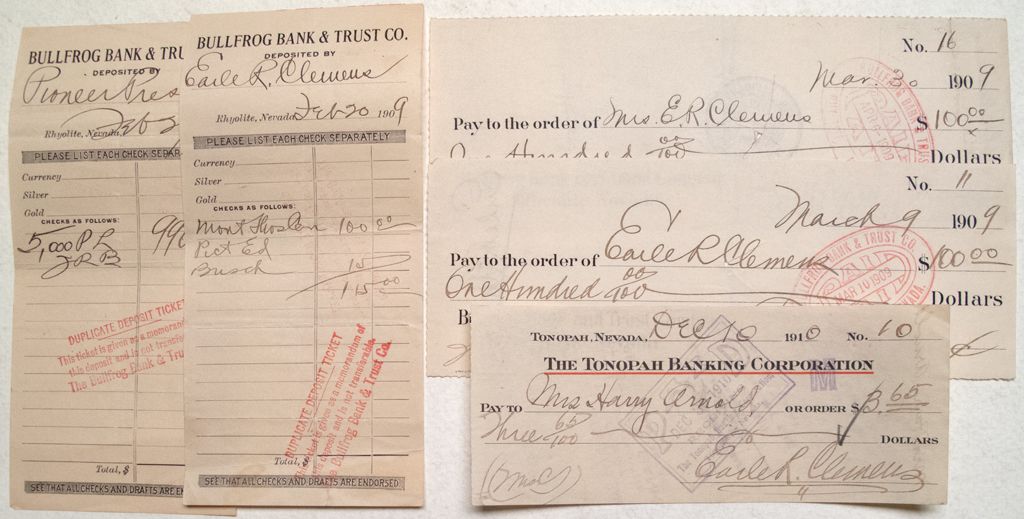 BULLFROG BANK & TRU
DEPOSITED BY
Pioneer Pres
Rhyolite, Nevada, Feb 2
PLEASE LIST EACH CHECK SEPAR
Currency
Silver
Gold
CHECKS AS FOLLOWS:
5,000 P L 990
J R B
DUPLICATE DEPOSIT TICKET
This ticket is given as a memorand
this deposit and is not transfe
The Bullfrog Bank & Tru
Total, $
SEE THAT ALL CHECKS AND DRAFTS ARE EN
BULLFROG BANK & TRUST CO.
DEPOSITED BY
Earle R. Clemens
Rhyolite, Nevada Feb 20 1909
PLEASE LIST EACH CHECK SEPARATELY
Currency
Silver
Gold
CHECKS AS FOLLOWS:
100 00
Pict Ed
Busch 15
115 00
DUPLICATE DEPOSIT TICKET
This ticket is given as a memorandum of
this deposit and is not transferable.
The Bullfrog Bank & Trust Co.
Total,
SEE THAT ALL CHECKS AND DRAFTS ARE ENDORSED.
No. 16
Mar. 20 1909
Pay to the order of Mrs. E.R. Clemens $100 00
One Hundred 00/100 Dollars
No. 11
March 9 1909
Pay to the order of Earle R Clemens $100 00
One Hundred 00/100 Dollars
BANK & TRUST CO.
PAID
MAR 10 1909
TONOPAH, NEVADA, Dec 10 1910 No. 10
THE TONOPAH BANKING CORPORATION
M
PAY TO Mrs Harry Arnold, OR ORDER $3.65
Three 65/100 DOLLARS
Earle R. Clemens